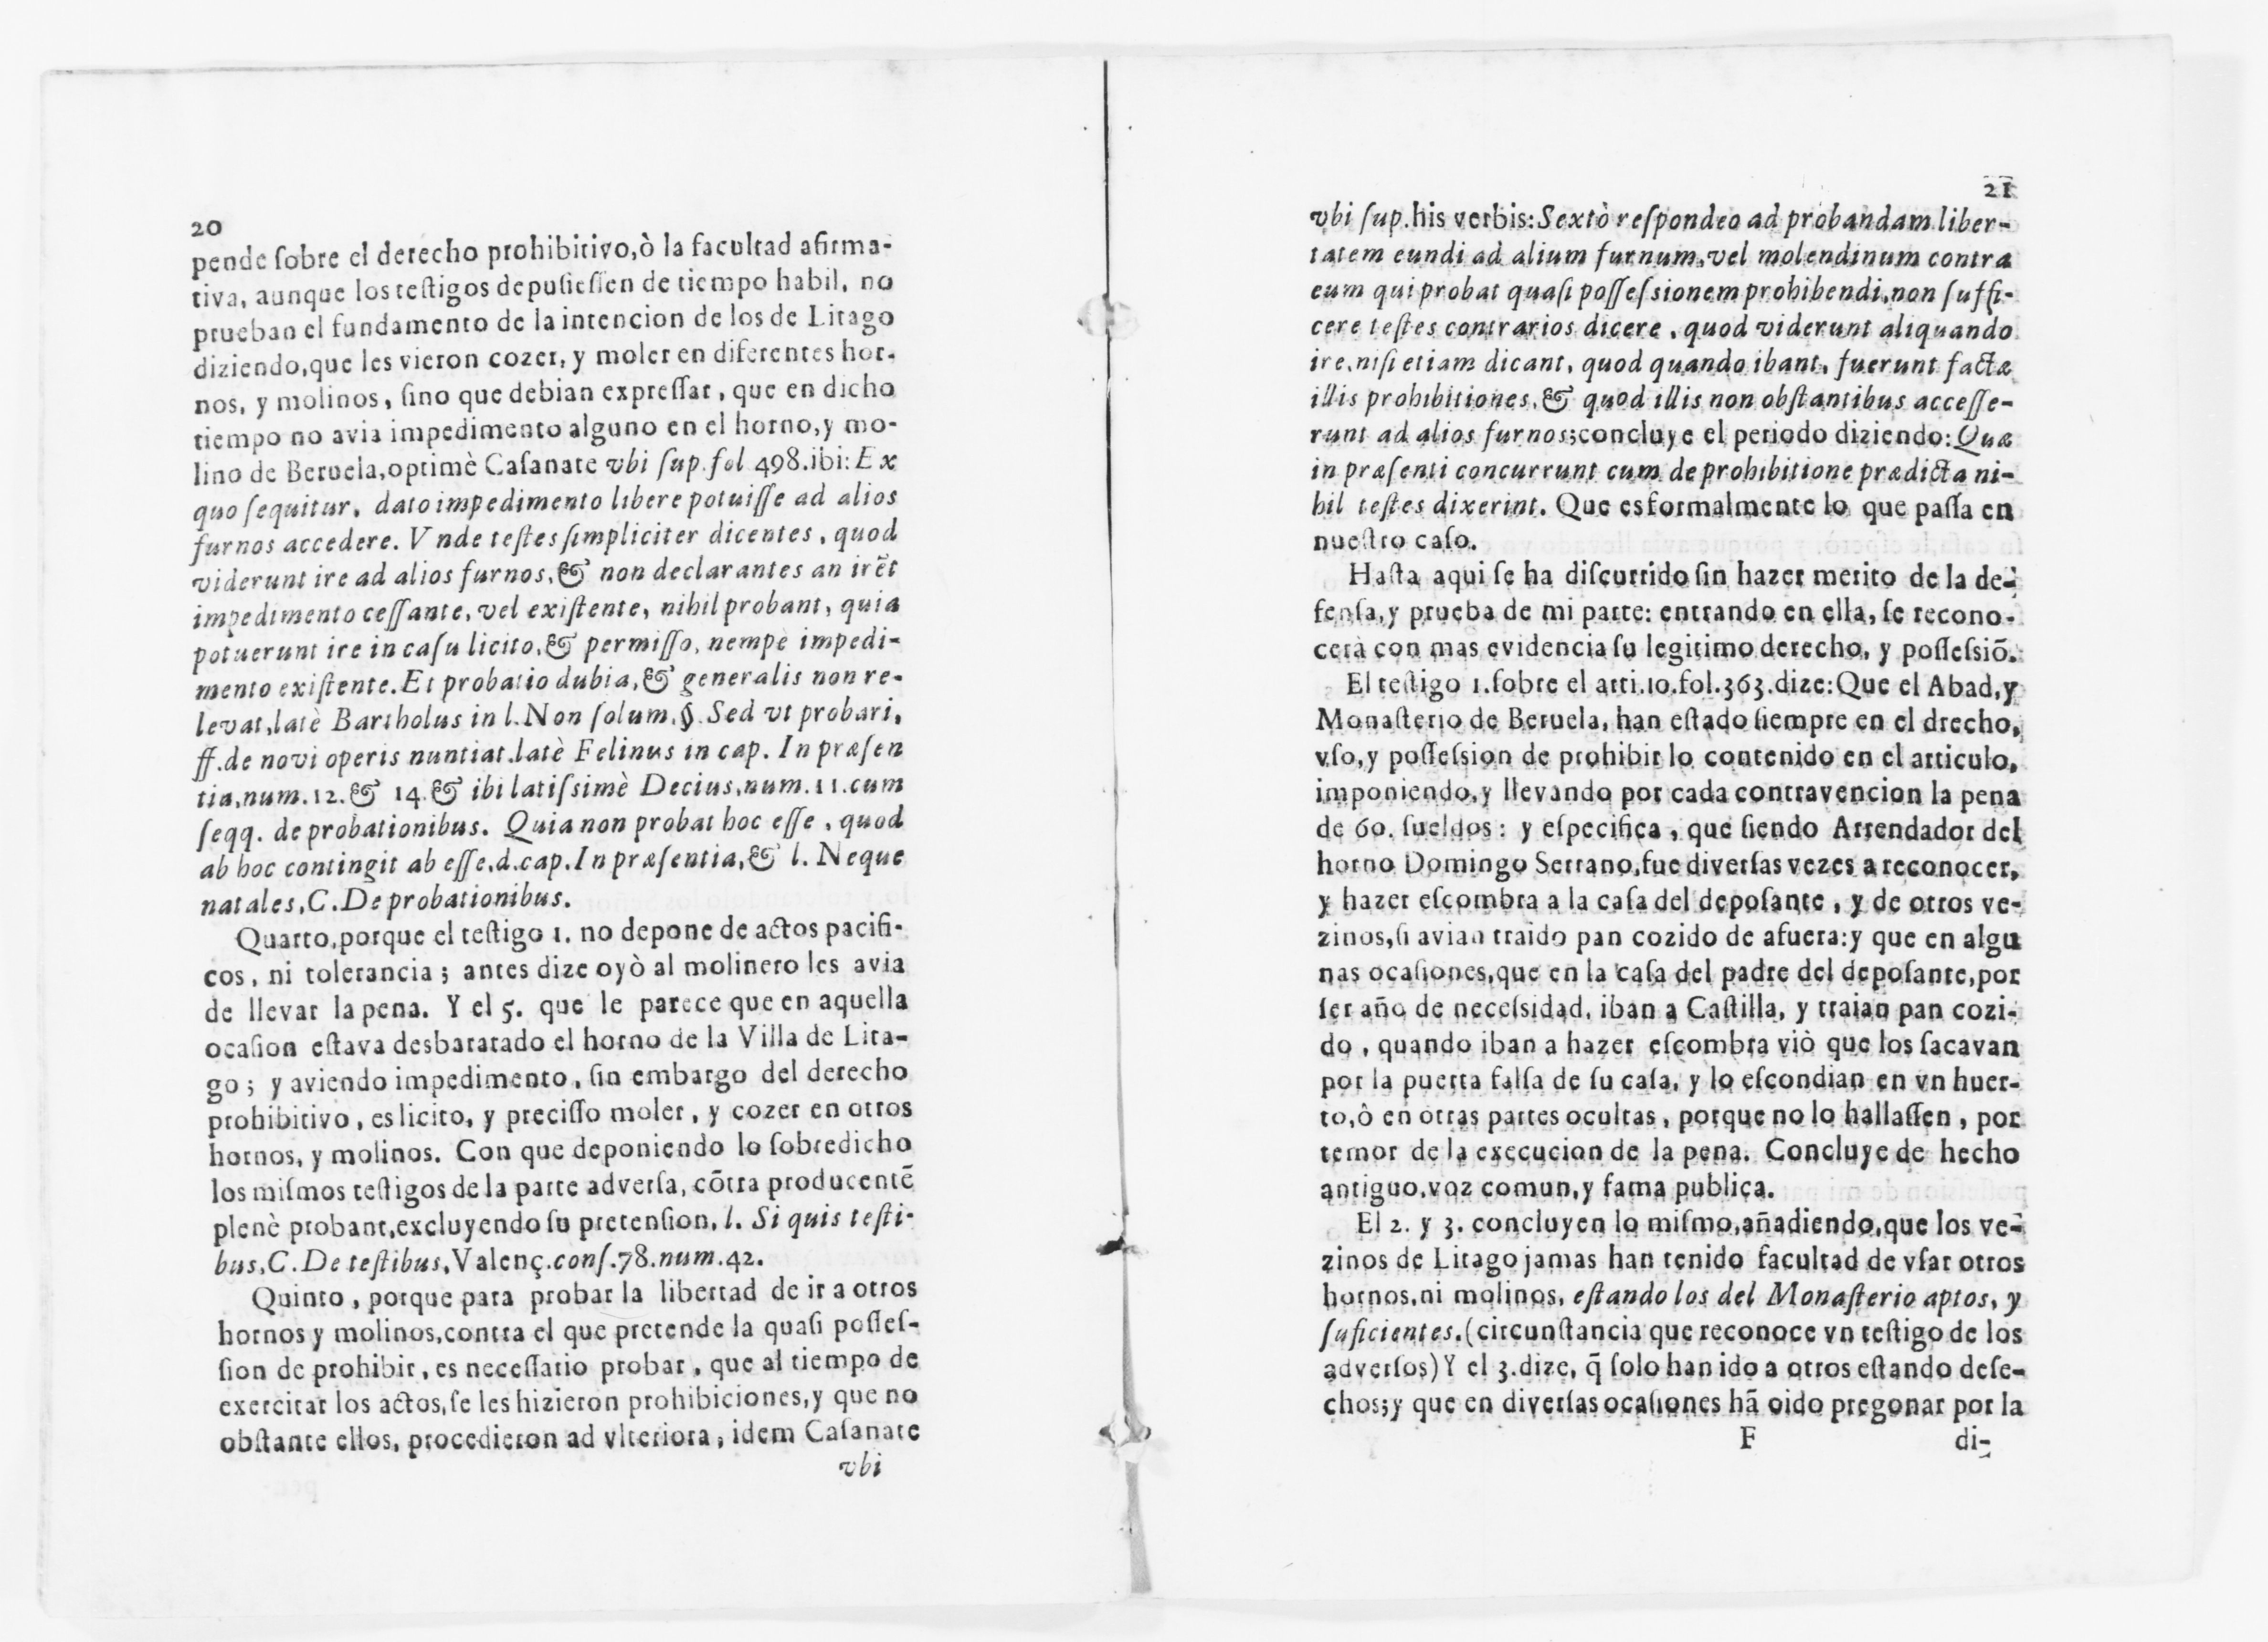 20
pende ſobre el derecho prohibitivo,ò la facultad afirma-
tiva, aunque los teſtigos depuſieſſen de tiempo habil, no
prueban el fundamento de la intencion de los de Litago
diziendo,que les vieron cozer, y moler en diferentes hor-
nos, y molinos, ſino que debian expreſſar, que en dicho
tiempo no avia impedimento alguno en el horno,y mo-
lino de Beruela,optimè Caſanate vbi ſup.fol 498.ibi: Ex
quo ſequitur, dato impedimento libere potuiſſe ad alios
furnos accedere. Vnde teſtes ſimpliciter dicentes, quod
viderunt ire ad alios furnos,& non declarantes an irẽt
impedimento ceſſante, vel exiſtente, nihil probant, quia
potuerunt ire in caſu licito,& permiſſo, nempè impedi-
mento exiſtente. Et probatio dubia,& generalis non re-
levat,latè Bartholus in l. Non ſolum,§. Sed vt probari,
ff.de novi operis nuntiat.latè Felinus in cap. In præſen
tia,num.12.& 14.& ibi latiſsimè Decius,num.11.cum
ſeqq. de probationibus. Quia non probat hoc eſſe, quod
ab hoc contingit ab eſſe,d.cap.In præſentia,& l. Neque
natales, C. De probationibus.
Quarto,porque el teſtigo 1. no depone de actos pacifi-
cos, ni tolerancia; antes dize oyò al molinero les avia
de llevar la pena. Y el 5. que le parece que en aquella
ocaſion eſtava desbaratado el horno de la Villa de Lita-
go; y aviendo impedimento, ſin embargo del derecho
prohibitivo, es licito, y preciſſo moler, y cozer en otros
hornos, y molinos. Con que deponiendo lo ſobredicho
los miſmos teſtigos de la parte adverſa, cõtra producentẽ
plenè probant,excluyendo ſu pretenſion, l. Si quis teſti-
bus, C. De teſtibus,Valenç.conſ.78.num.42.
Quinto, porque para probar la libertad de ir a otros
hornos y molinos,contra el que pretende la quaſi poſſeſ-
ſion de prohibir, es neceſſario probar, que al tiempo de
exercitar los actos,ſe les hizieron prohibiciones,y que no
obſtante ellos, procedieron ad vlteriora, idem Caſanate
vbi
21
vbi ſup.his verbis: Sextò reſpondeo ad probandam liber-
tatem eundi ad alium furnum,vel molendinum contra
eum qui probat quaſi poſſeſsionem prohibendi,non ſuffi-
cere teſtes contrarios dicere, quod viderunt aliquando
ire,niſi etiam dicant, quod quando ibant, fuerunt factæ
illis prohibitiones,& quod illis non obſtantibus acceſſe-
runt ad alios furnos;concluye el periodo diziendo: Quæ
in præſenti concurrunt cum de prohibitione prædicta ni-
hil teſtes dixerint. Que es formalmente lo que paſſa en
nueſtro caſo.
Haſta aqui ſe ha diſcurrido ſin hazer merito de la de-
fenſa,y prueba de mi parte: entrando en ella, ſe recono-
cerà con mas evidencia ſu legitimo derecho, y poſſeſsiõ.
El teſtigo 1.ſobre el arti.10.fol.363.dize:Que el Abad,y
Monaſterio de Beruela, han eſtado ſiempre en el drecho,
vſo,y poſſeſsion de prohibir lo contenido en el articulo,
imponiendo,y llevando por cada contravencion la pena
de 60. ſueldos: y eſpecifica, que ſiendo Arrendador del
horno Domingo Serrano,fue diverſas vezes a reconocer,
y hazer eſcombra a la caſa del depoſante, y de otros ve-
zinos,ſi avian traido pan cozido de afuera:y que en algu
nas ocaſiones,que en la caſa del padre del depoſante,por
ſer año de neceſsidad, iban a Caſtilla, y traian pan cozi-
do, quando iban a hazer eſcombra viò que los ſacavan
por la puerta falſa de ſu caſa, y lo eſcondian en vn huer-
to,ò en otras partes ocultas, porque no lo hallaſſen, por
temor de la execucion de la pena. Concluye de hecho
antiguo,voz comun,y fama publica.
El 2. y 3. concluyen lo miſmo,añadiendo,que los ve-
zinos de Litago jamas han tenido facultad de vſar otros
hornos,ni molinos, eſtando los del Monaſterio aptos, y
ſuficientes,(circunſtancia que reconoce vn teſtigo de los
adverſos)Y el 3.dize, q̃ ſolo han ido a otros eſtando deſe-
chos;y que en diverſas ocaſiones hã oido pregonar por la
F di-